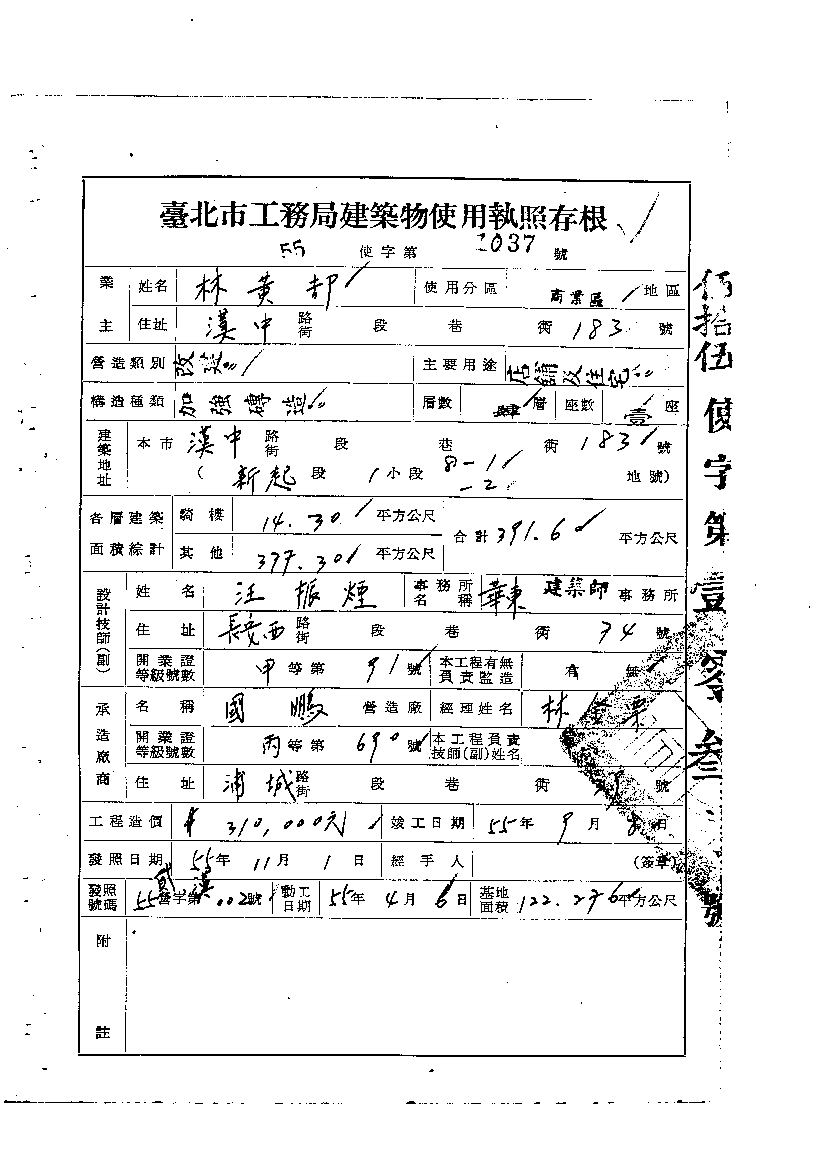 臺北市工務局建築物使用執照存根
55 使字第 1037 號
業主 姓名 林黃 使用分區 商業區 地區
住址 漢中 路街 段 巷 街 183 號
營造類別 改造 主要用途 店鋪及住宅
構造種類 加強磚造 層數 肆層 座數 壹座
建築地址 本市 漢中 路街 段 巷 街 183 號
( 新起 段 1 小段 8-1 地號)
-2
各層建築面積綜計 騎樓 14.30 平方公尺 合計 391.60 平方公尺
其他 377.30 平方公尺
設計技師(副) 姓名 汪振煙 事務所名稱 華東 建築師 事務所
住址 長安西 路街 段 巷 街 74 號
開業證等級號數 甲等第 91 號 本工程有無負責監造 有 無
承造廠商 名稱 國鵬 營造廠 經理姓名 林金
開業證等級號數 丙等第 690 號 本工程負責技師(副)姓名
住址 浦城 路街 段 巷 街 號
工程造價 310,000元 竣工日期 55年 9月 8日
發照日期 55年 11月 1日 經手人 (簽章)
發照號碼 55 營字第 002號 動工日期 55年 4月 6日 基地面積 122.276平方公尺
附註
佰拾伍使字第壹零叁號